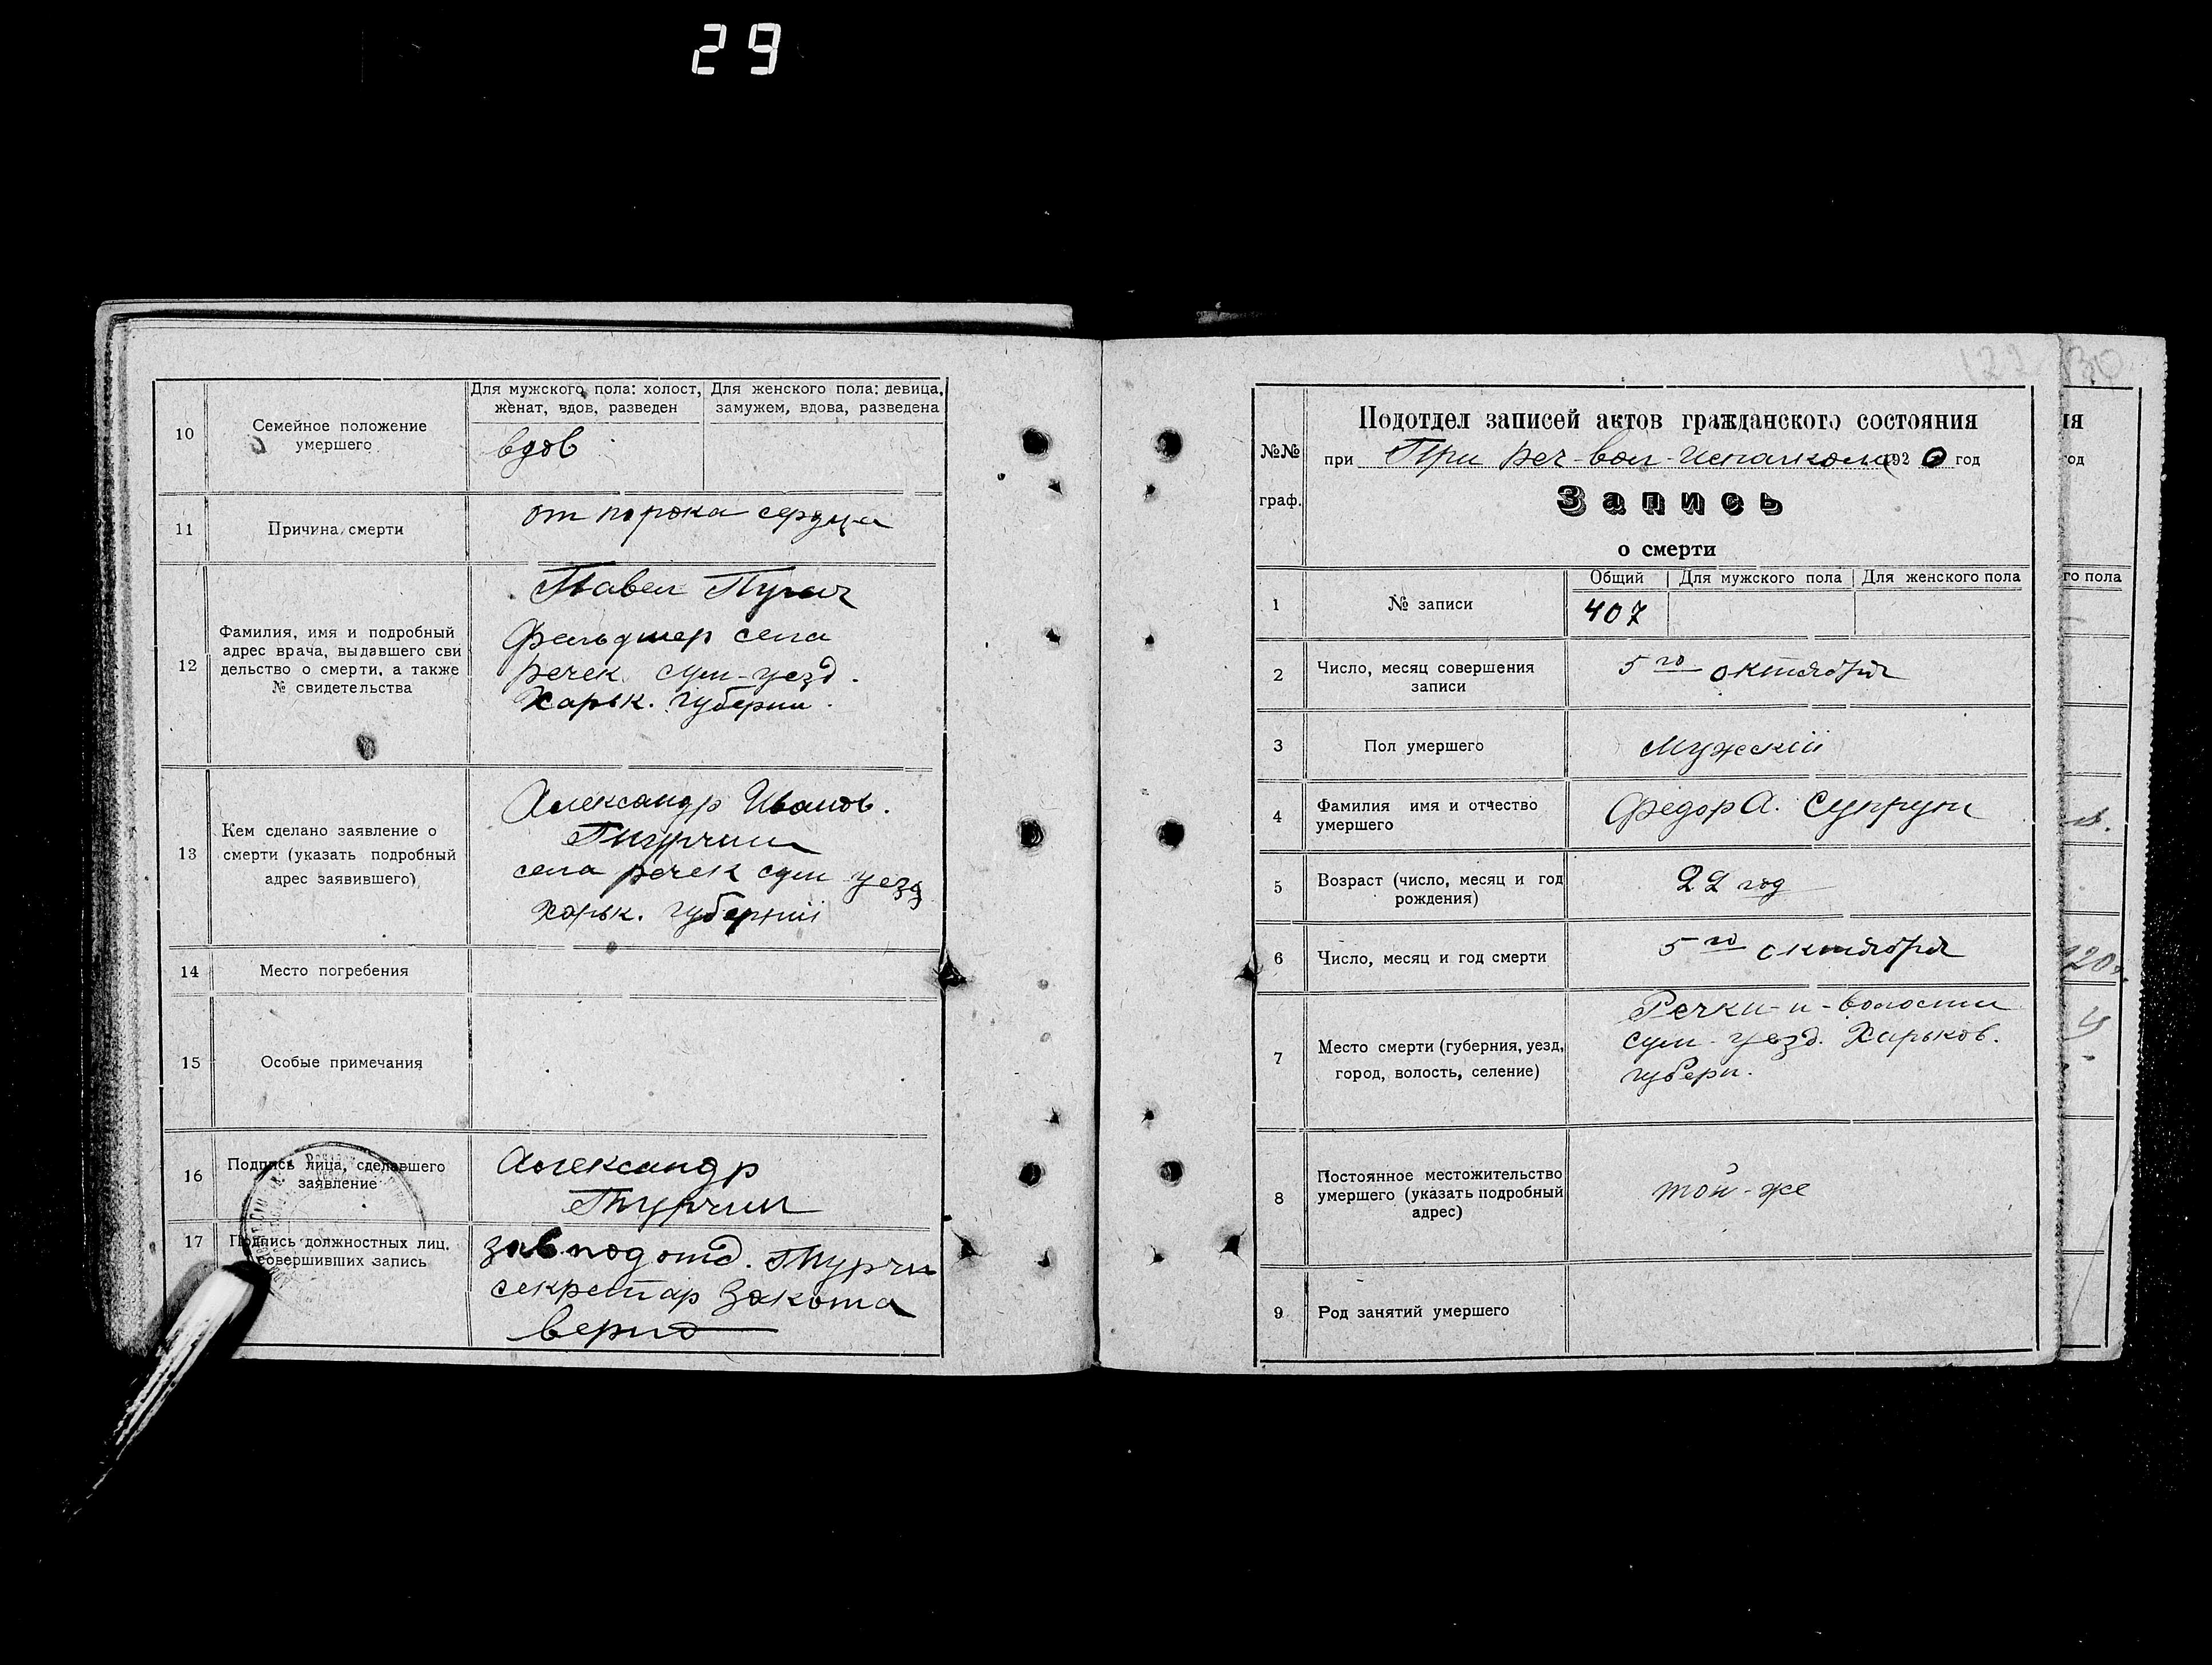 29
10
Семейное положение
умершего
Для мужского пола: холост,
женат, вдов, разведен
Для женского пола: девица,
замужем, вдова, разведена
вдов
11
Причина смерти
от порока сердца
12
Фамилия, имя и подробный
адрес врача, выдавшего сви
дельство о смерти, а также
№ свидетельства
Павел Пугач
Фельдшер села
речек сум-уезд.
Харьк. губернии.
13
Кем сделано заявление о
смерти (указать подробный
адрес заявившего)
Александр Иванов.
села речек сум уезд
Харьк. губерніи
14
Место погребения
15
Особые примечания
16
Подпись лица, сделавшего
заявление
Александр
17
Подпись должностных лиц.
совершивших запись
зав.подотд.
секретар
верно
122
30
№№
граф.
Подотдел записей актов гражданского состояния
при При Реч-вол-исполкома 1920 год
Запись
о смерти
1
№ записи
Общий
Для мужского пола
Для женского пола
407
2
Число, месяц совершения
записи
5го октября
3
Пол умершего
Мужскіи
4
Фамилия имя и отчество
умершего
Федор А. Супрун
5
Возраст (число, месяц и год
рождения)
22 год
6
Число, месяц и год смерти
5го октября
7
Место смерти (губерния, уезд,
город, волость, селение)
Речки-и-волости
сум-уезд. Харьков.
губерн.
8
Постоянное местожительство
умершего (указать подробный
адрес)
той-же
9
Род занятий умершего
ия
год
го пола